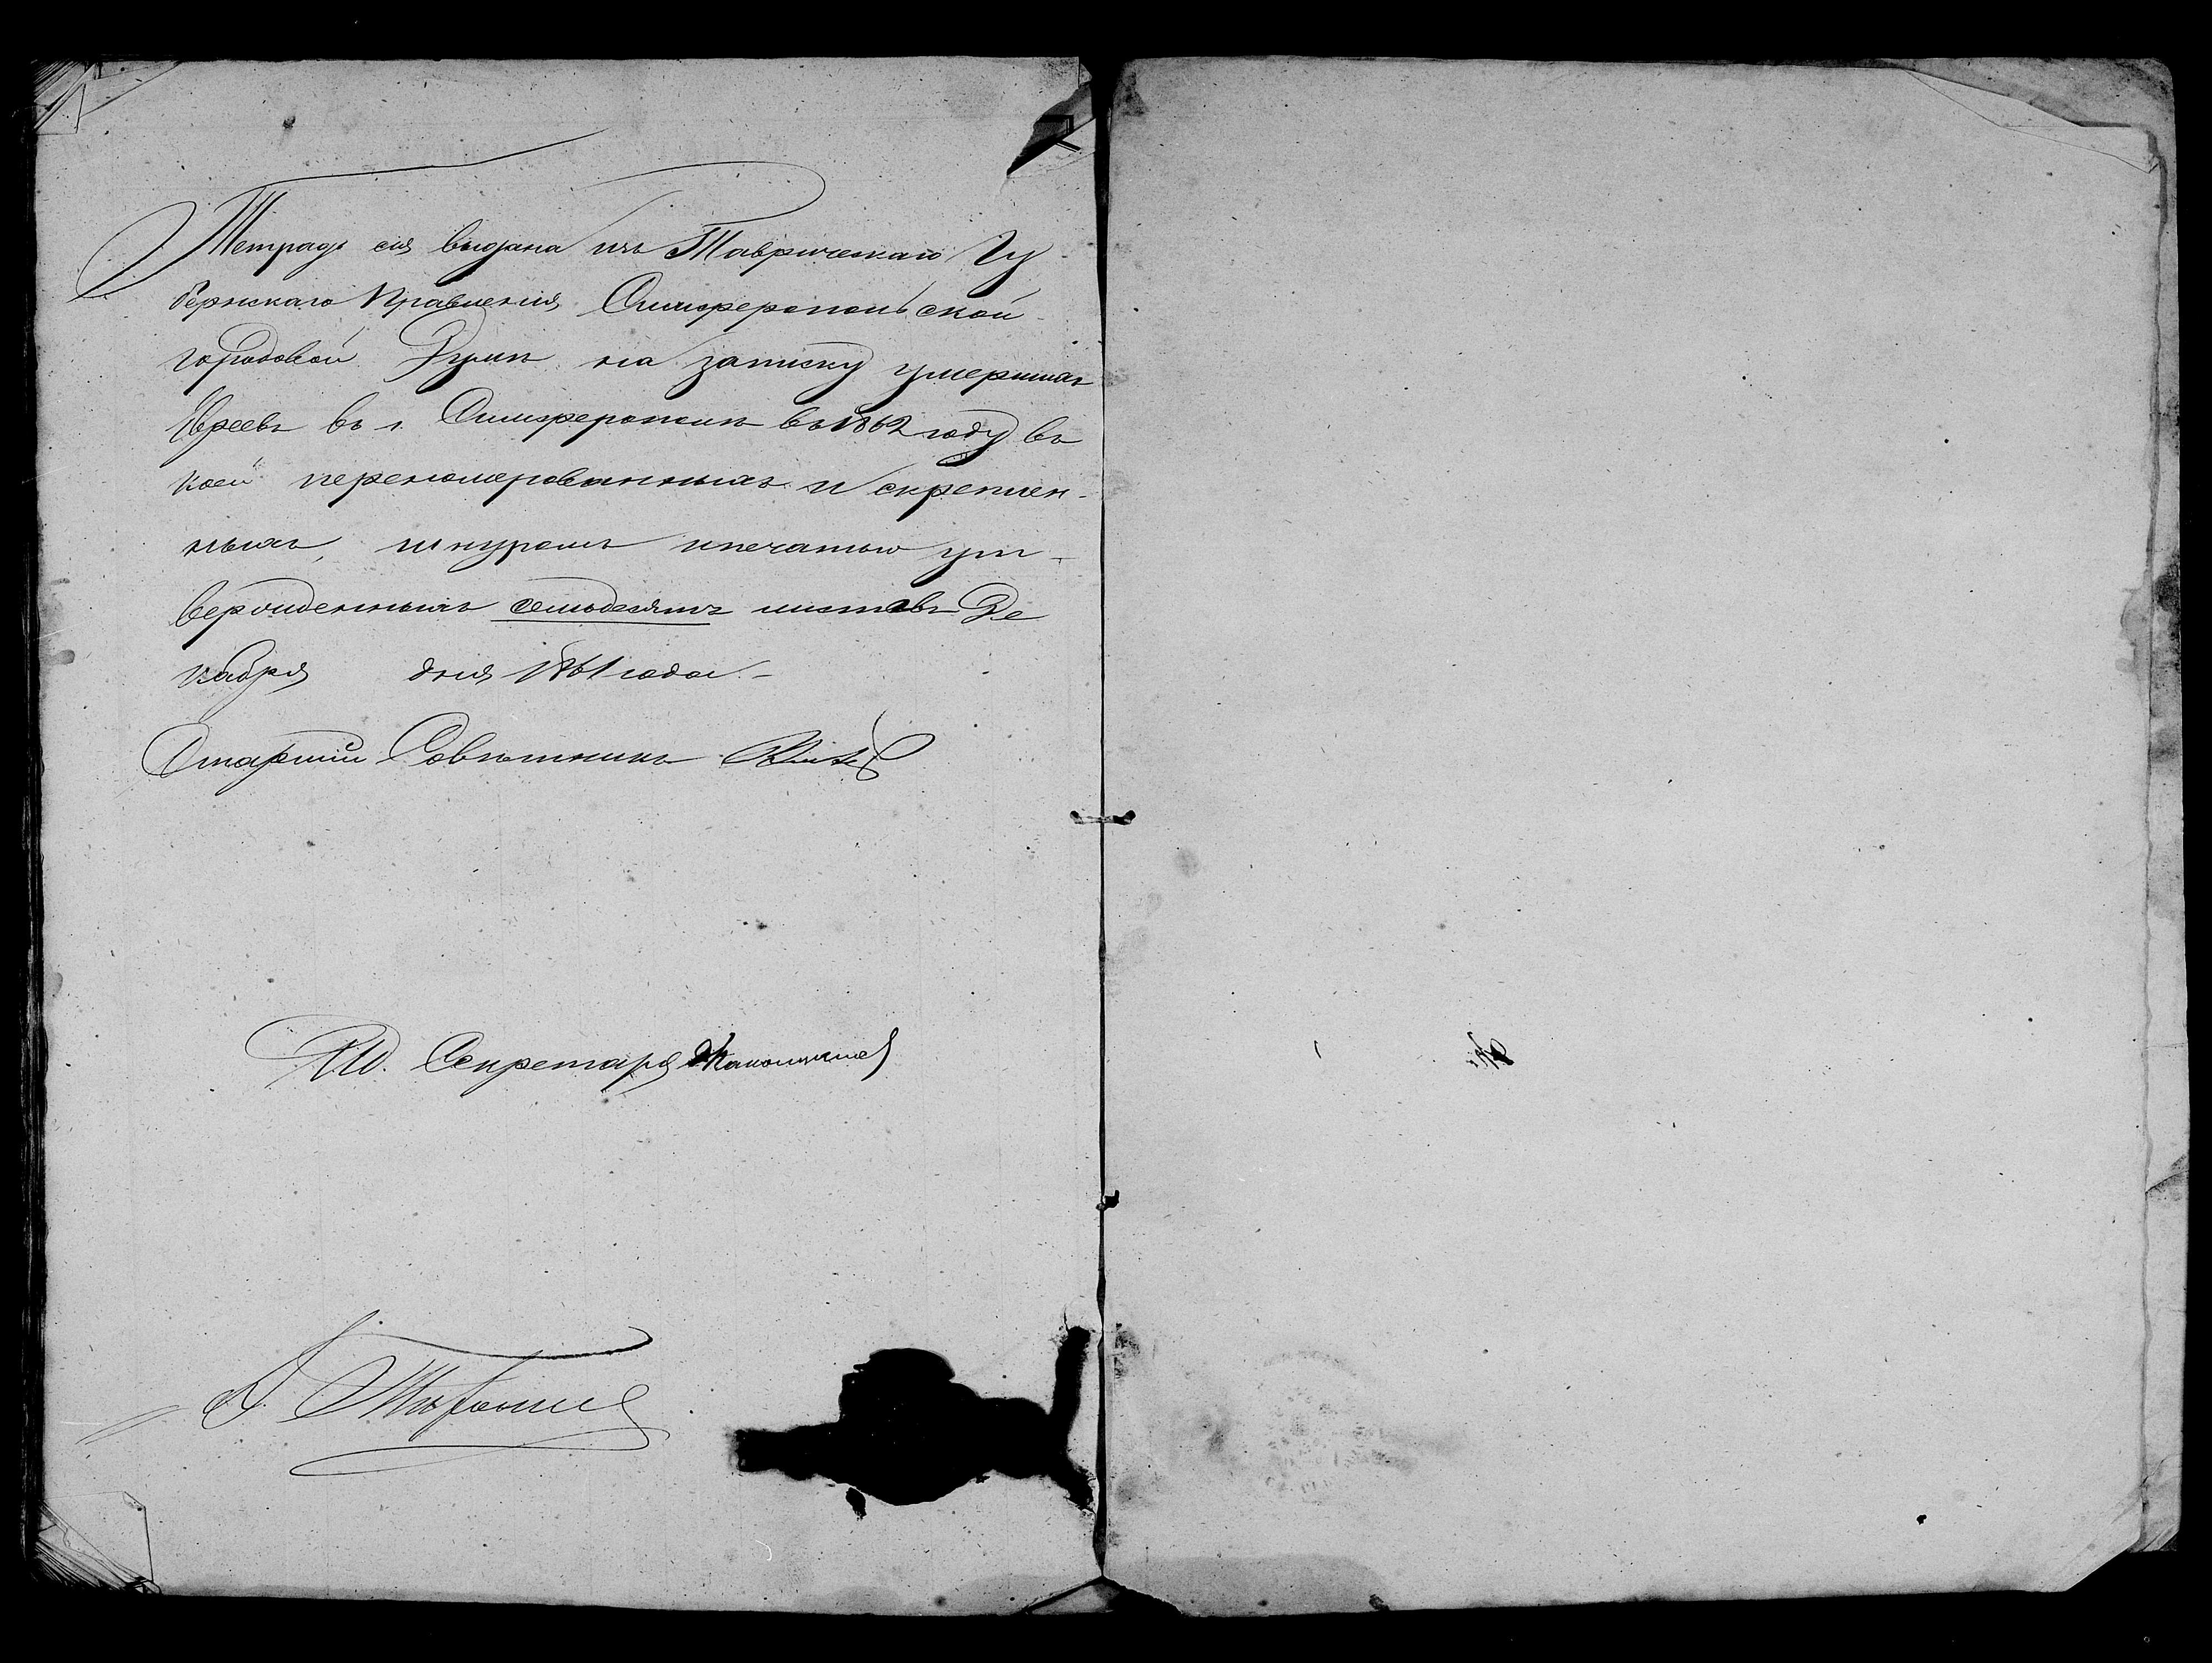 Тетрадь сія выдана изъ Таврическаго Гу
бернскаго Правленія Симферопольской
городовой Думѣ на записку умершихъ
Евреевъ въ г. Симферополѣ въ 1862 году въ
коей перенумерованныхъ и скреплен-
ныхъ, шнуромъ и печатью ут-
вержденныхъ семьдесятъ листовъ Де
кабря дня 1861 года. -
Старшій Совѣтникъ
И.Д. Секретаря